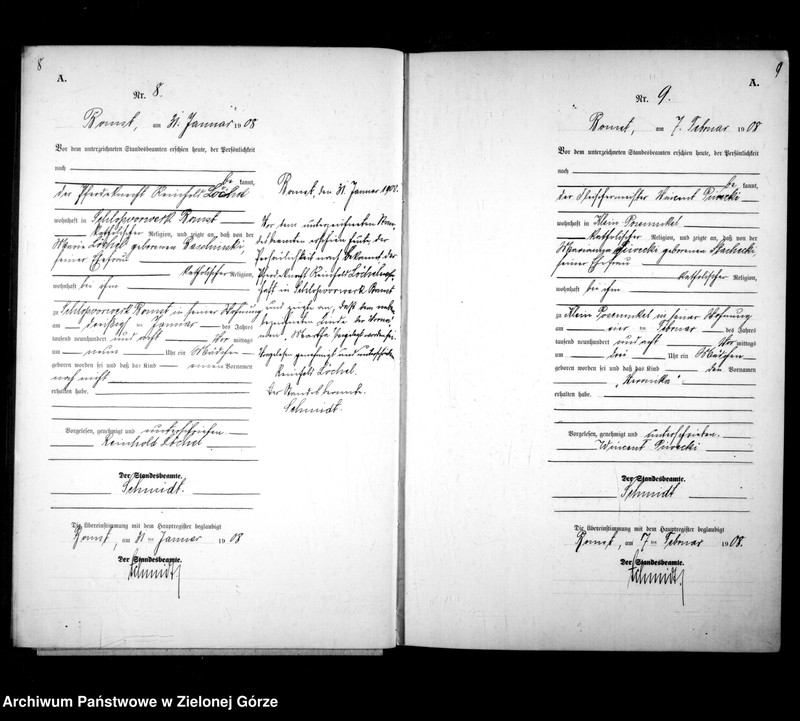 8
A.
Nr. 8.
Bomst, am 31. Januar 1908
Vor dem unterzeichneten Standesbeamten erschien heute, der Persönlichkeit
nach
be kannt,
der Pferdeknecht Reinhold Löchel
wohnhaft in Schloßvorwerk Bomst
katholischer Religion, und zeigte an, daß von der
Maria Löchel geborenen
seiner Ehefrau
katholischer Religion,
wohnhaft bei ihm
zu Schloßvorwerk Bomst in seiner Wohnung
am Januar des Jahres
tausend neunhundert und acht Vor mittags
um neun Uhr ein Mädchen
geboren worden sei und daß das Kind einen Vornamen
noch nicht
erhalten habe.
Vorgelesen, genehmigt und unterschrieben
Reinhold Löchel
Der Standesbeamte.
Schmidt.
Die Übereinstimmung mit dem Hauptregister beglaubigt
Bomst, am 31 ten Januar 1908
Der Standesbeamte.
Schmidt
Bomst, den 31. Januar 1908.
Vor dem unterzeichneten Stan-
desbeamten erschien heute, der
Persönlichkeit nach bekannt der
Pferdeknecht Reinhold Löchel wohn-
haft in Schloßvorwerk Bomst
und zeigte an, daß dem neben-
bezeichneten Kinde der Vorna-
men Martha beigelegt worden sei.
Vorgelesen genehmigt und unterschrieben
Reinhold Löchel.
Der Standesbeamte.
Schmidt.
9
A.
Nr. 9.
Bomst, am 7. Februar 1908
Vor dem unterzeichneten Standesbeamten erschien heute, der Persönlichkeit
nach
be kannt,
der Wincent Piwecki
wohnhaft in Klein Posemukel
katholischer Religion, und zeigte an, daß von der
Marianna Piwecki geborenen
seiner Ehefrau
katholischer Religion,
wohnhaft bei ihm
zu Klein Posemukel in seiner Wohnung
am vier ten Februar des Jahres
tausend neunhundert und acht Vor mittags
um drei Uhr ein Mädchen
geboren worden sei und daß das Kind den Vornamen
"Veronika"
erhalten habe.
Vorgelesen, genehmigt und unterschrieben.
Wincent Piwecki
Der Standesbeamte.
Schmidt
Die Übereinstimmung mit dem Hauptregister beglaubigt
Bomst, am 7 ten Februar 1908.
Der Standesbeamte.
Schmidt
Archiwum Państwowe w Zielonej Górze